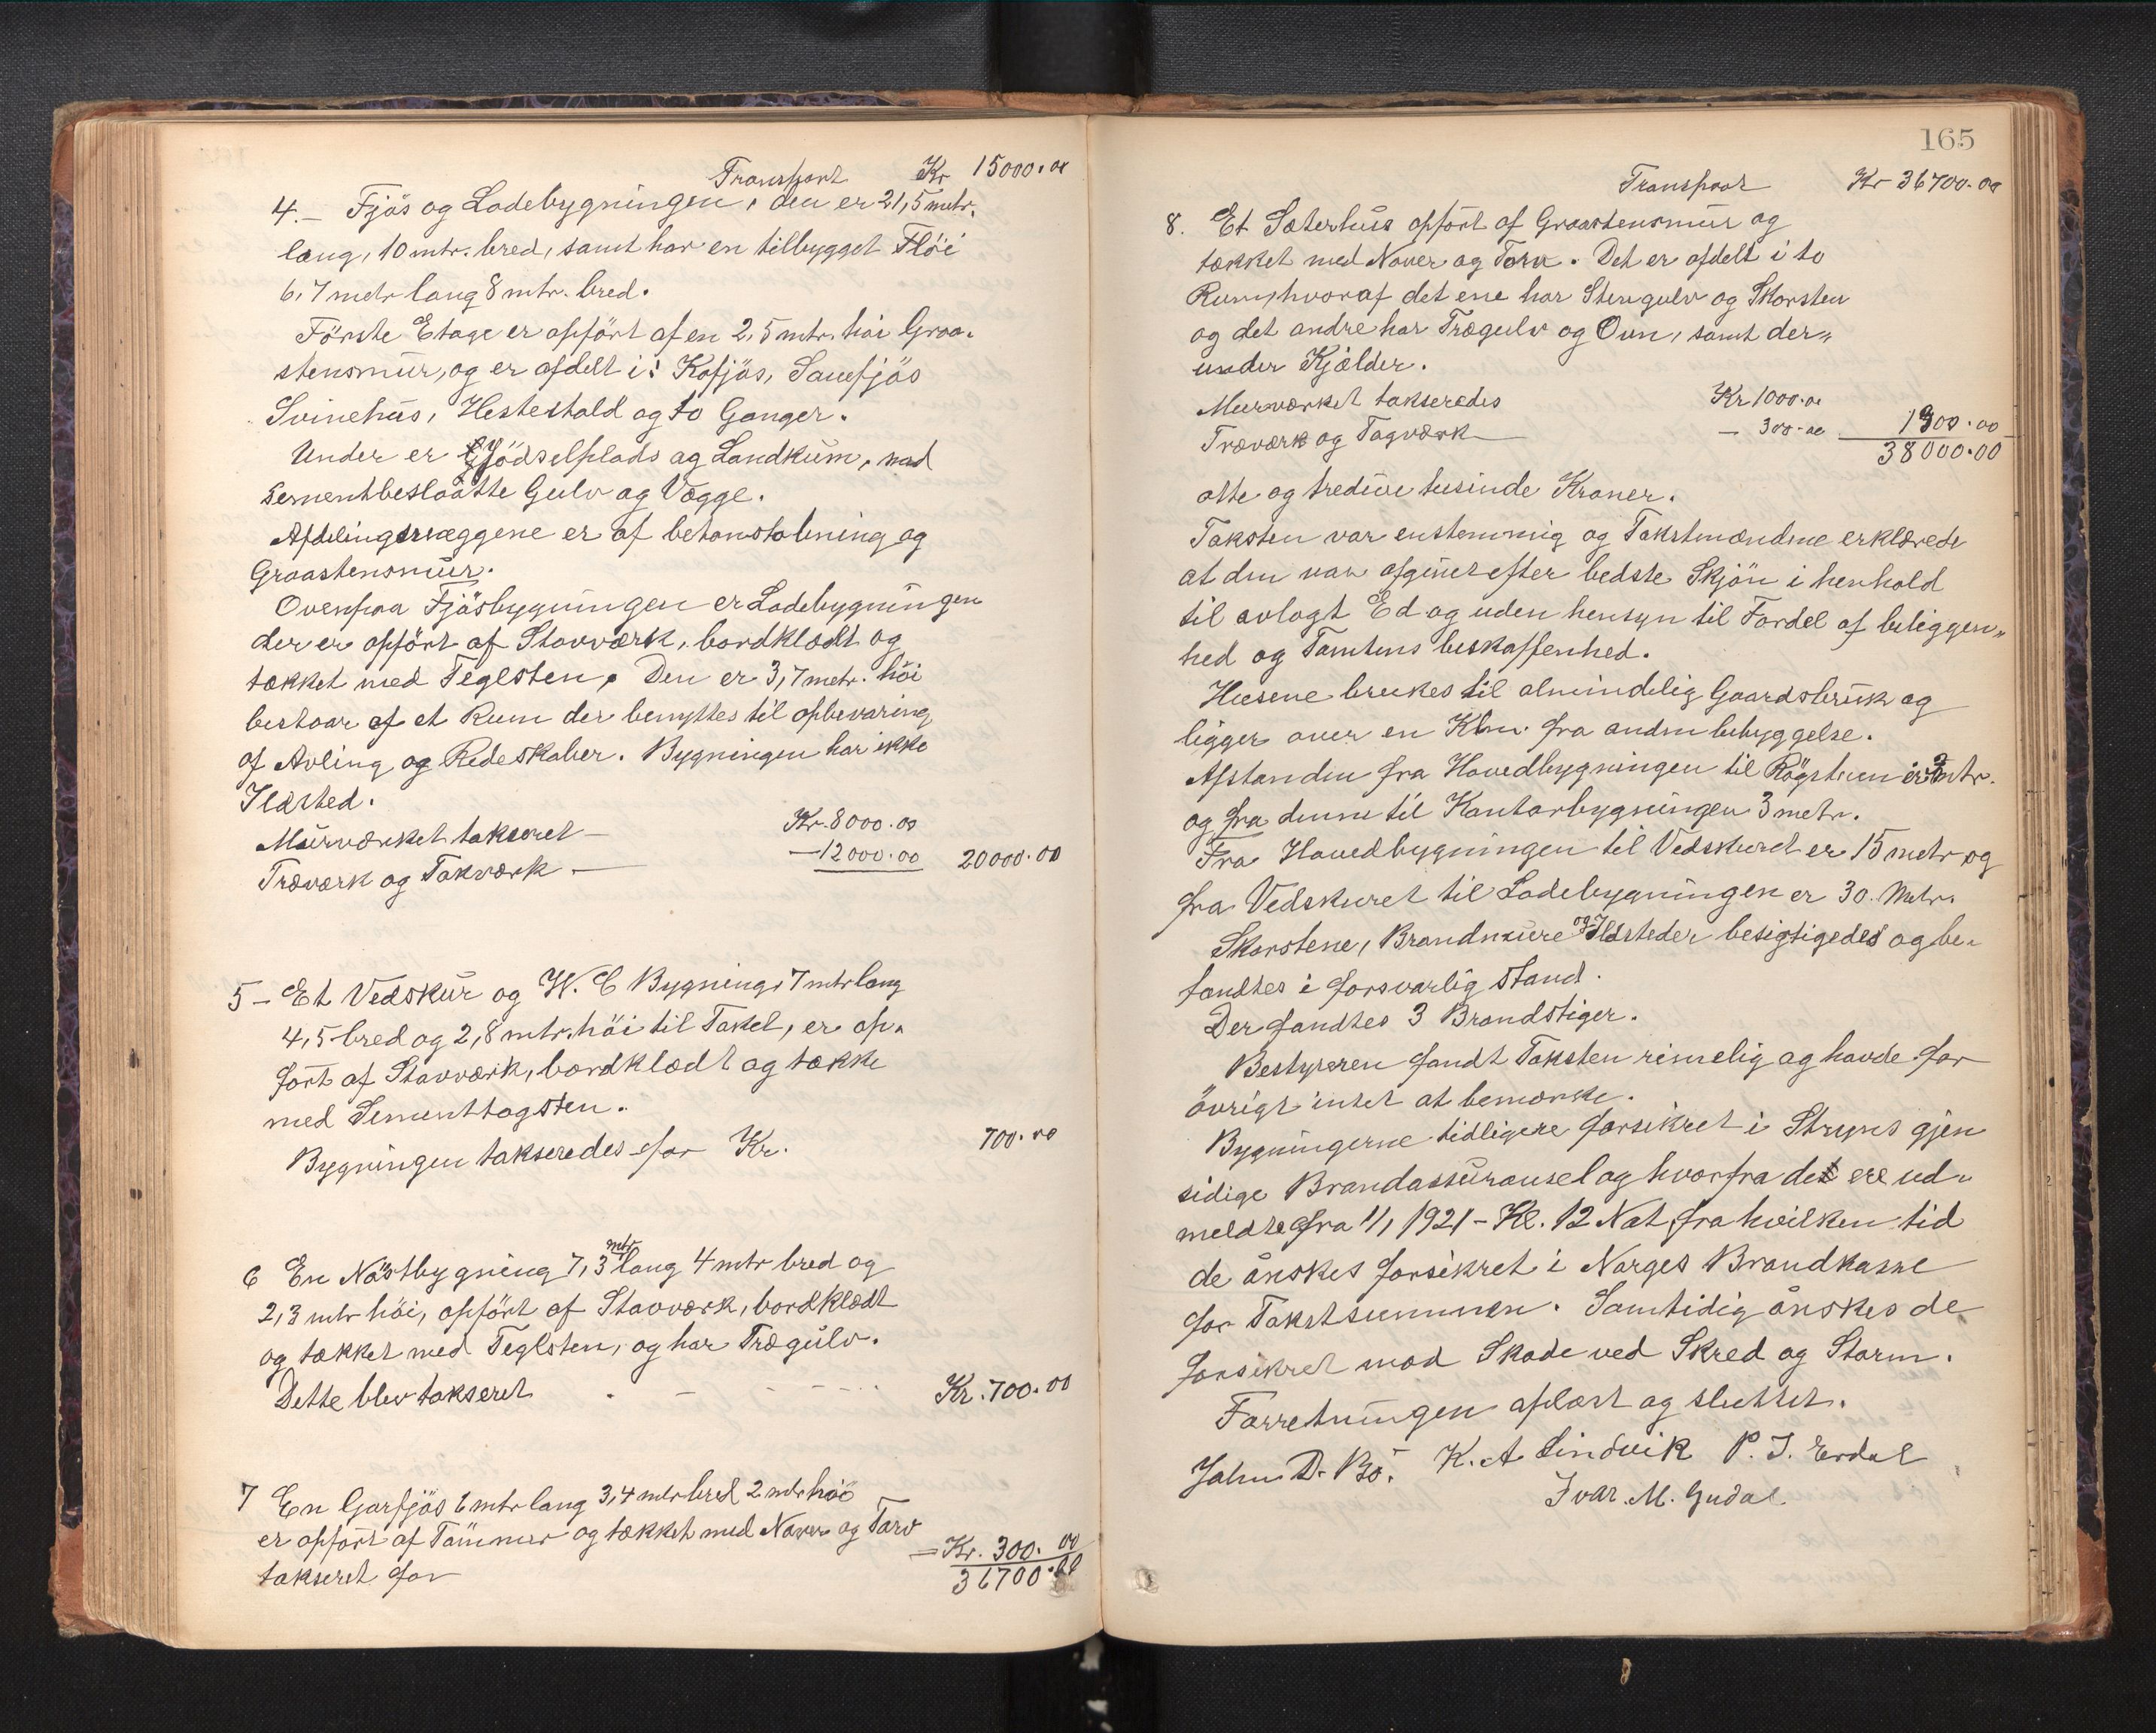 Transport Kr 15000.00
4. - Fjös og Ladebygningen, den er 21,5 metr.
lang, 10 mtr. bred, samt har en tilbygget Flöi
6,7 metr lang 8 mtr. bred.
Förste Etage er opfört af en 2,5 mtr. höi Graa-
stensmur, og er afdelt i: Kofjös, Sauefjös
Svinehus, Hestestald og to Ganger.
Under er Gjödselplads og Landkum, med
sementbeslaatte Gulv og Vægge.
Afdelingsvæggene er af betonstøbning og
Graastensmur.
Ovenpaa Fjösbygningen er Ladebygningen
der er opfört af Stavværk, bordklædt og
tækket med Teglsten. Den er 3,7 metr. höi
bestaar af et Rum der benyttes til opbevaring
af Avling og Redeskaber. Bygningen har ikke
Ildsted.
Murværket takseret - Kr. 8000.00
Træværk og Takværk - - 12000.00 20000.00
5 - Et Vedskur og W. C Bygning, 7 mtr lang
4,5 bred og 2,8 mtr. höi til Taket, er op-
fört af Stavværk, bordklædt og tække
med Sementtagsten.
Bygningen takseredes for Kr. 700.00
6 En Nöstbygning 7,3 mtr lang 4 mtr bred og
2,3 mtr höi, opfört af Stavværk, bordklædt
og tækket med Teglsten, og har Trægulv.
Dette blev takseret Kr. 700.00
7 En Garfjös 6 mtr lang 3,4 mtr bred 2 mtr höi
er opfört af Tömmer og tækket med Næver og Torv
takseret for = Kr. 300.00
36700.00
165
Transport Kr 36700.00
8. Et Sæterhus opfört af Graastensmur og
tækket med Næver og Torv. Det er afdelt i to
Rum, hvoraf det ene har Stengulv og Skorsten
og det andre har Trægulv og Ovn, samt der-
under Kjælder.
Murværket takseredes Kr 1000.00
Træværk og Tagværk - 300.00 1300.00
38000.00
otte og tredive tusinde Kroner.
Taksten var enstemmig og Takstmændene erklærede
at den var afgivet efter bedste Skjön i henhold
til avlagt Ed og uden hensyn til Fordel af beliggen-
hed og Tomtens beskaffenhed.
Husene brukes til almindelig Gaardsbruk og
ligger over en Klm. fra anden bebyggelse.
Afstanden fra Hovedbygningen til Rögstuen er mtr.
og fra denne til Kontorbygningen 3 metr.
Fra Hovedbygningen til Vedskuret er 15 metr og
fra Vedskuret til Ladebygningen er 30. Metr.
Skorstene, Brandmure og Ildsteder besigtigedes og be-
fandtes i forsvarlig stand.
Der fandtes 3 Brandstiger.
Bestyreren fandt Taksten rimelig og havde for
övrigt intet at bemærke.
Bygningerne tidligere forsikret i Stryns gjen
sidige Brandassuransel og hvorfra de ere ud-
meldte fra 1/1 1921 - Kl. 12 Nat, fra hvilken tid
de önskes forsikret i Norges Brandkasse
for Takstsummen. Samtidig önskes de
forsikret mod Skade ved Skred og Storm.
Forretningen oplæst og sluttet.
John D. Bö. K. A Lindvik P. J. Erdal
Ivar. M. Gudal